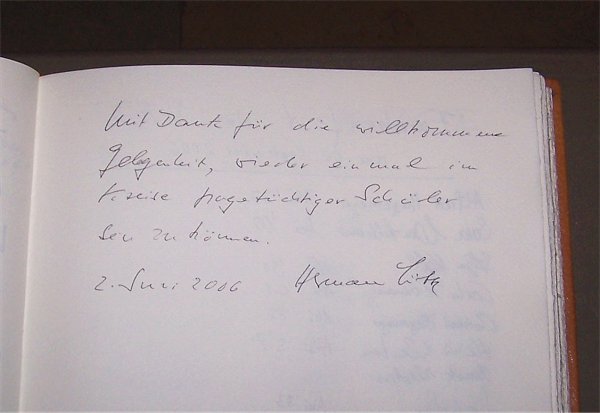 Mit Dank für die willkommene
Gelegenheit, wieder einmal im
Kreise fragetüchtiger Schüler
sein zu können.
2. Juni 2006 Hermann